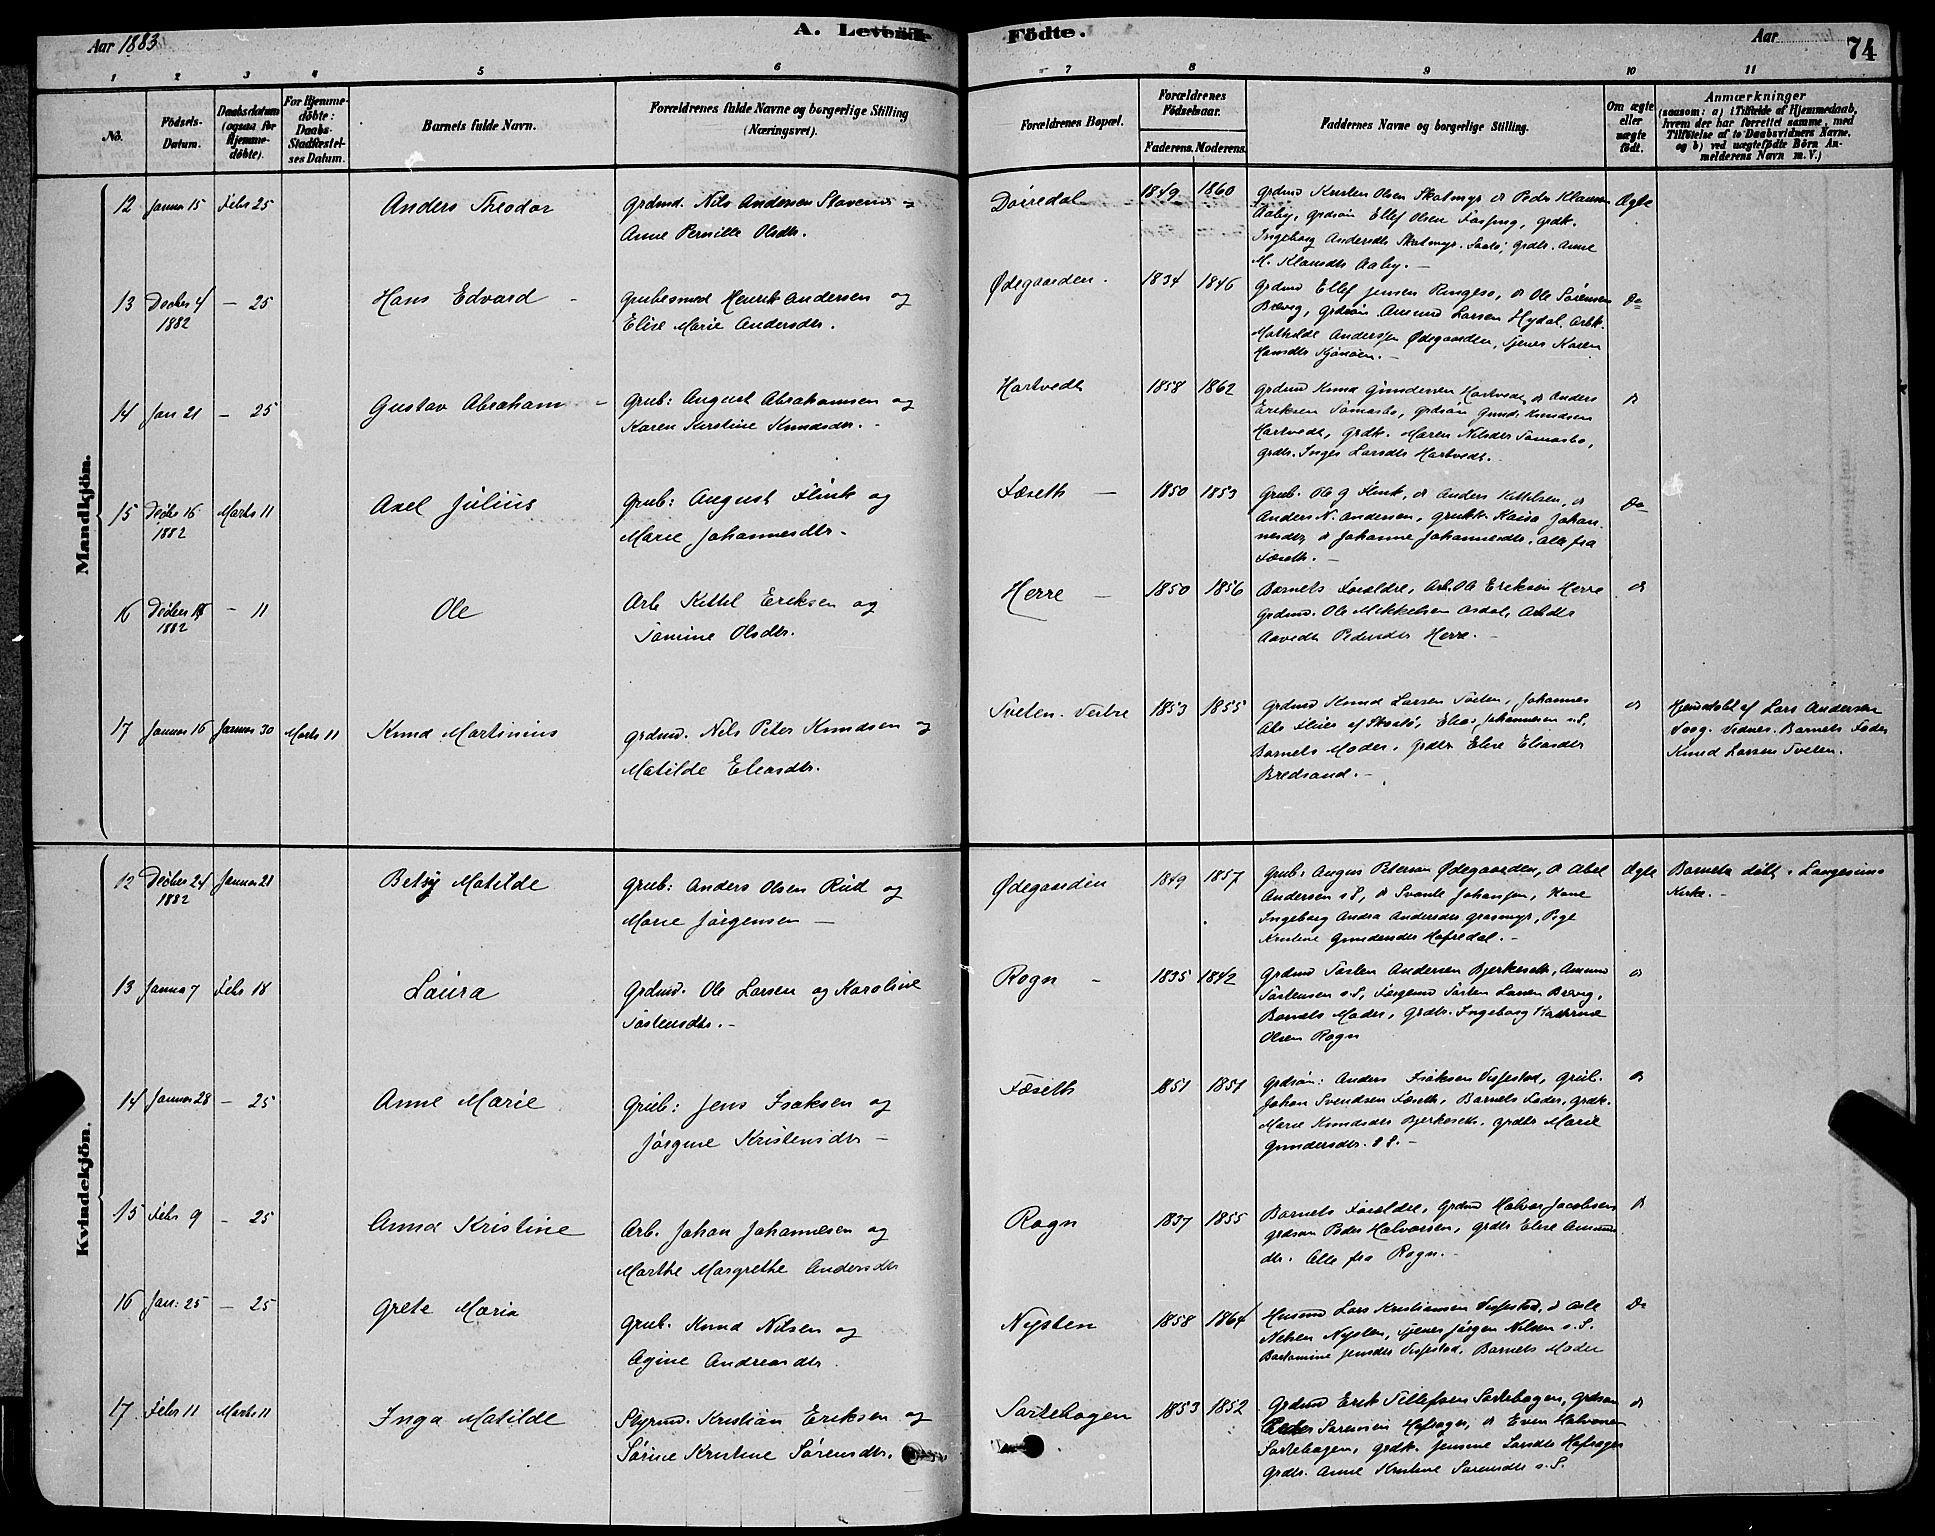 Aar 1883
A. Levende Födte.
Aar
74
1 2 3 4 5 6 7 8 9 10 11
No.
Födsels-Datum.
Daabsdatum (ogsaa for Hjemmedöbte).
For Hjemmedöbte: Daabs-Stadfæstelses Datum.
Barnets fulde Navn.
Forældrenes fulde Navne og borgerlige Stilling (Næringsvei).
Forældrenes Bopæl.
Forældrenes Födselsaar.
Faderens. Moderens.
Faddernes Navne og borgerlige Stilling.
Om ægte eller uægte födt.
Anmærkninger
(saasom: a) i Tilfælde af Hjemmedaab, hvem der har forrettet samme, med Tilföielse af to Daabsvidners Navne, og b) ved uægtefödte Börn Anmelderens Navn m. V.)
Mandkjön.
12 Januar 15 Febr 25 Anders Theodor
Grdmd. Nils Andersen Stavenes
Anne Pernille Olsdtr.
Dörredal 1849 1860
Grdmd Kristen Olsen Skatmyr
Aaby, grdsön Ellef Olsen
Ingeborg Andersdtr Skatmyr
M. Klausdtr Aaby. Ægte
13 Decber 4 1882 – 25 Hans Edvard
Grubesmed Henrik Andersen og
Elise Marie Andersdtr.
Ødegaarden. 1834 1846
Grdmd Ellef Jensen, Ole Sörensen
Brevig, grdsön Amund Larsen Hydal, Arbk.
Mathilde Andersen Ødegaarden, Karen
Hansdtr. Do
14 Jan 21 – 25 Gustav Abraham
Grub: August Abrahamsen og
Karen Kirstine Knudsdtr.
Hartvedt 1858 1862
Grdmd Knud Gundersen Hartvedt, Anders
Eriksen, grdsön Gund. Knudsen
Hartvedt, grdk. Maren Nilsdtr
grdtr. Inger Larsdtr Hartvedt.
15 Decbr 16 1882 Marts 11 Axel Julius
Grub: August Flink og
Marie Johannesdtr.
Fæseth 1850 1853
Grub. Ole G Flink, Anders Kittelsen,
Anders N. Andersen, Kaisa Johannesdtr,
Johanne Johannesdtr, alle fra
Fæseth. Do
16 Decber 1882 – 11 Ole
Arb Kittel Eriksen og
Tomine Olsdtr.
Herre 1850 1856
Barnets Forældre, Arb. Ole Eriksen Herre
grdmd. Ole Mikkelsen
Pedersdtr Herre.
17 Januar 16 Januar 30 Marts 11 Knud Martinius
Grdmd. Nels Peter Knudsen og
Matilde Eliasdtr.
Tveten Vestre 1853 1855
Grdmd Knud Larsen Tveten, Johannes
Elias Johannesen s.S.
Barnets Moder, grdtr Elise Eliasdtr
Bredsand.
Hjemdöbt af Lars Andersen
Vidner. Barnets Fader
Knud Larsen Tveten.
Kvindekjön.
12 Decber 24 1882 Januar 21 Betsy Matilde
Grub: Anders Olsen Rud og
Marie Jörgensen
Ødegaarden 1849 1857
Grub. August Petersen Ødegaarden, Abel
Andersen s.S, Svante Johansen, Kone
Ingeborg Andrea Andersdtr Grasmyr, Pige
Kristine Gundersdtr Hafredal. Ægte
Barnet döbt i Langesunds
Kirke.
13 Januar 7 Febr 18 Laura
Grdmd. Ole Larsen og Karoline
Torstensdtr.
Rogn 1835 1842
Grdmd Torsten Andersen Bjerkeseth, Amund
Torstensen s.S, Torsten Larsen Brevig,
Barnets Moder, grdtr. Ingeborg Katrine
Olsen Rogn
14 Januar 28 – 25 Anne Marie
Grub: Jens Isaksen og
Jörgine Kristensdtr
Fæseth 1851 1851
Grdsön: Anders Isaksen Vissestad, Grub.
Johan Svendsen Fæseth, Barnets Fader, grdk.
Marie Knudsdtr Bjerkeseth, grdtr Marie
Gundersdtr. s S.
15 Febr 9 – 25 Anna Kristine
Arb. Johan Johannesen og
Marthe Margrethe Andersdtr
Rogn 1837 1855
Barnets Forældre, Grdmd Halvor Jacobsen
grdsön Peder Halvorsen, grdtr Elise Amundsdtr.
Alle fra Rogn.
16 Jan: 25 – 25 Grete Maria
Grub. Knud Nilsen og
Agine Andreasdtr.
Nysten 1858 1864
Husmd Lars Kristiansen Vissestad,
Nilsen Nysten, tjener Jörgen Nilsen s.S.
Bartomine Jensdtr Vissestad, Barnets Moder Do
17. Febr 11 Marts 11 Inga Matilde
Styrmd. Kristian Eriksen og
Sörine Kristine Sörensdtr.
Sortebogen 1853 1852
Grdmd Erik Tellefsen Sortebogen, grdsön
Peder Sörensen, Even Halvorsen
Sortebogen, grdk. Jensine Larsdtr
grdtr. Anne Kristine Sörensdtr s.S.